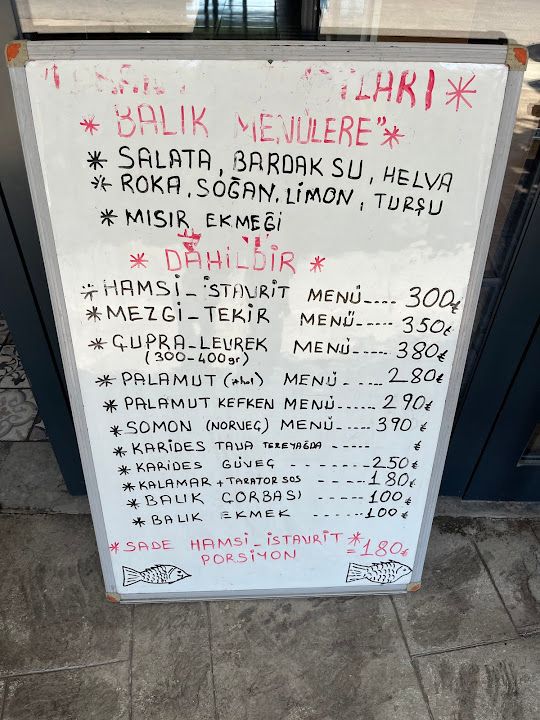 * BALIK MENÜLERE"*
* SALATA, BARDAK SU, HELVA
* ROKA, SOĞAN, LİMON, TURŞU
* MISIR EKMEĞİ
* DAHİLDİR *
* HAMSİ_İSTAVRİT MENÜ---- 300₺
* MEZGİ-TEKİR MENÜ---- 350₺
* ÇUPRA-LEVREK MENÜ----- 380₺
(300-400gr)
* PALAMUT MENÜ - --- 280₺
* PALAMUT KEFKEN MENÜ----- 290₺
* SOMON (NORVEÇ) MENÜ---- 390 ₺
* KARİDES TAVA TEREYAĞDA ----- ₺
* KARİDES GÜVEÇ - ------- 250₺
* KALAMAR + TARATOR SOS ------ 180₺
* BALIK ÇORBASI ---- 100₺
* BALIK EKMEK ----- 100₺
* SADE HAMSİ_İSTAVRİT *
PORSİYON =180₺